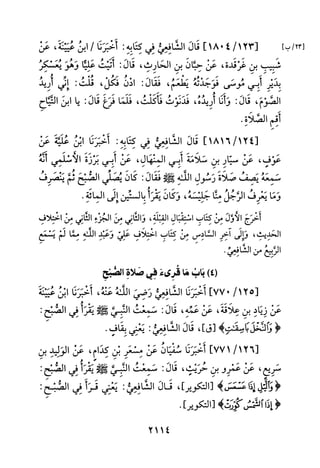 [١٢٣/ب]
[١٨٠٤/١٢٣] قَالَ الشَّافِعِيُّ فِي كِتَابِهِ: أَخْبَرَنَا ابْنُ عُيَيْنَةَ، عَنْ
شَبِيبِ بنِ غَرْقَدة، عَنْ حَبَّانَ بنِ الحَارِثِ، قَالَ: أَتَيْتُ عَلِيًّا وَهُوَ يُعَسْكِرُ
بِدَيْرِ أَبِي مُوسَى فَوَجَدْتُهُ يَطْعَمُ، فَقَالَ: ادْنُ فَكُلْ، قُلْتُ: إِنِّي أُرِيدُ
الصَّوْمَ، قَالَ: وَأَنَا أُرِيدُهُ، فَدَنَوْتُ فَأَكَلْتُ، فَلَمَّا فَرَغَ قَالَ: يا ابنَ التَّيَّاحِ
أَقِمِ الصَّلَاةَ.
[١٨١٦/١٢٤] قَالَ الشَّافِعِيُّ فِي كِتَابِهِ: أَخْبَرَنَا ابْنُ عُلَيَّةَ، عَنْ
عَوْفٍ، عَنْ سيّارِ بنِ سَلَامَةَ أَبِي المِنْهَالِ، عَنْ أَبِي بَرْزَةَ الْأَسْلَمِيِّ أَنَّهُ
سَمِعَهُ يَصِفُ صَلَاةَ رَسُولِ اللَّهِ ﷺ فَقَالَ: كَانَ يُصَلِّي الصُّبْحَ ثُمَّ يَنْصَرِفُ
وَمَا يَعْرِفُ الرَّجُلُ مِنَّا جَلِيسَهُ، وَكَانَ يَقْرَأُ بِالسِّتِّينَ إِلَى المِائةِ.
أَخْرَجَ الْأَوَّلَ مِنْ كِتَابِ اسْتِقْبَالِ الْقِبْلَةِ، وَالثَّانِي مِنَ الْجُزْءِ الثَّانِي مِنْ اخْتِلَافِ
الحَدِيثِ، وَإِلَى آخِرِ السَّادِسِ مِنْ كِتَابِ اخْتِلَافِ عَلِيٍّ وَعَبْدِ اللَّهِ مِمَّا لَمْ يَسْمَعِ
الرَّبيعُ من الشافِعيِّ.
(٤) بَابُ مَا يُقْرَأُ فِي صَلَاةِ الصُّبْحِ
[٧٧٠/١٢٥] أَخْبَرَنَا الشَّافِعِيُّ رَضِيَ اللَّهُ عَنْهُ، أَخْبَرَنَا ابْنُ عُيَيْنَةَ
عَنْ زِيَادِ بنِ عِلَاقَةَ، عَنْ عَمِّهِ، قَالَ: سَمِعْتُ النَّبِيَّ ﷺ يَقْرَأُ فِي الصُّبْحِ:
﴿ وَٱلنَّخْلَ بَاسِقَـٰتٍ ﴾ [ق]، قَالَ الشَّافِعِيُّ: يَعْنِي: بِقَافٍ.
[٧٧١/١٢٦] أَخْبَرَنَا سُفْيَانُ عَنْ مِسْعَرِ بْنِ كِدَامٍ، عَنِ الوَلِيدِ بنِ
سَرِيعٍ، عَنْ عَمْرِو بنِ حُرَيْثٍ، قَالَ: سَمِعْتُ النَّبِيَّ ﷺ يَقْرَأُ فِي الصُّبْحِ:
﴿ وَٱلَّيْلِ إِذَا عَسْعَسَ ﴾ [التكوير]، قَالَ الشَّافِعِيُّ: يَعْنِي قَرَأَ فِي الصُّبْحِ:
﴿ إِذَا ٱلشَّمْسُ كُوِّرَتْ ﴾ [التكوير].
٢١١٤